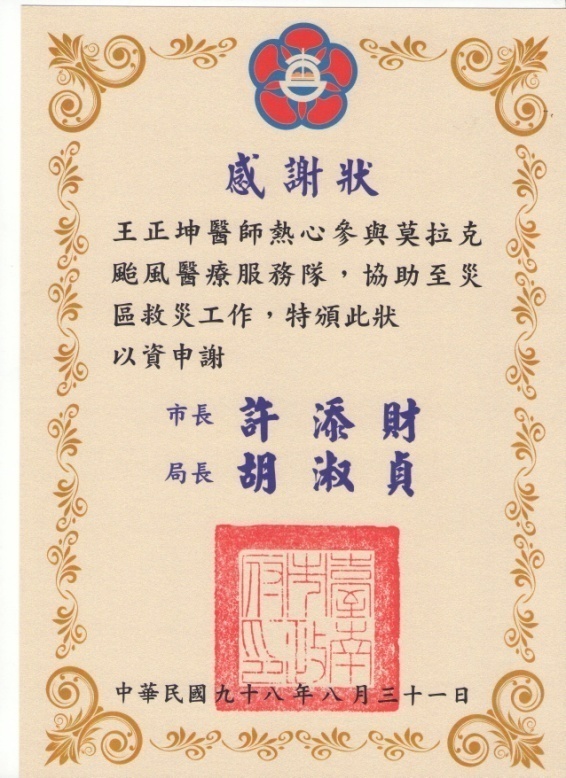 感謝狀
王正坤醫師熱心參與莫拉克
颱風醫療服務隊，協助至災
區救災工作，特頒此狀
以資申謝
市長 許添財
局長 胡淑貞
臺南市政府印
中華民國九十八年八月三十一日